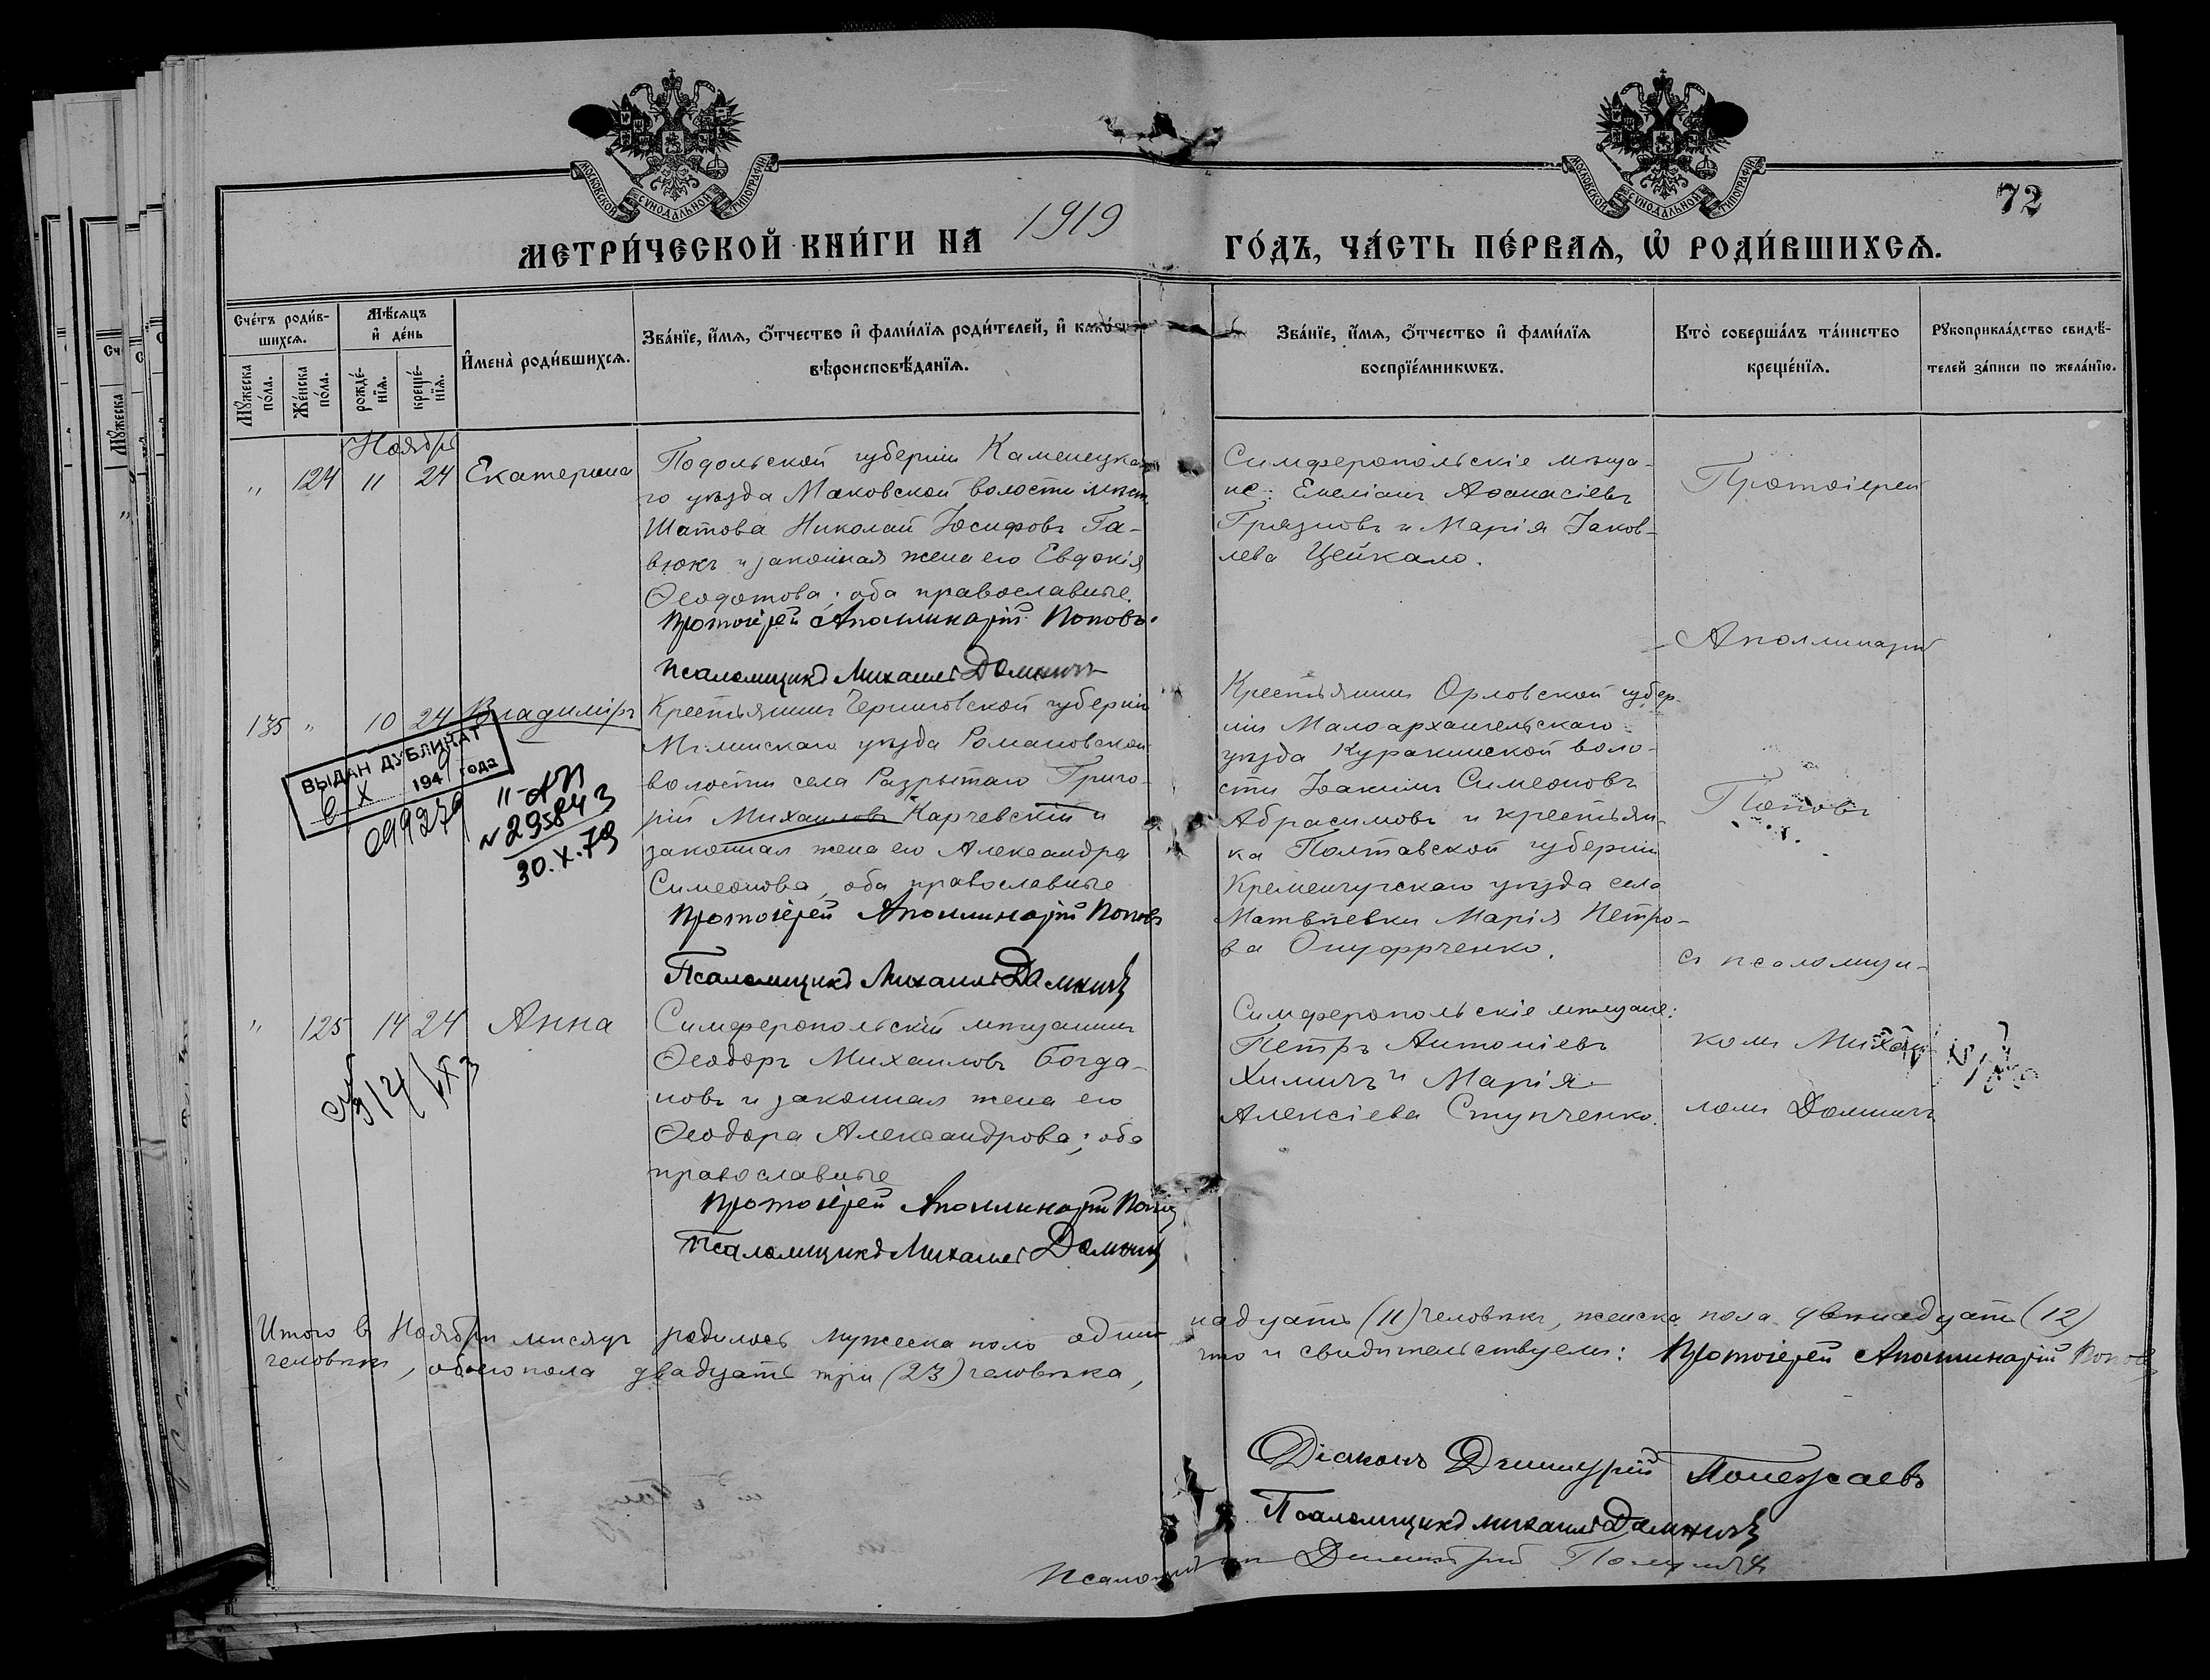 МОСКОВСКОЙ СУНОДАЛЬНОЙ ТИПОГРАФІИ
МОСКОВСКОЙ СУНОДАЛЬНОЙ ТИПОГРАФІИ
72
МЕТРИ́ЧЕСКОЙ КНИ́ГИ НА 1919 ГО́ДЪ, ЧА́СТЬ ПЕ́РВАѦ, Ѡ РОДИ́ВШИХСѦ.
Сче́тъ роди́в-
шихсѧ.
Мꙋжеска
по́ла.
Же́нска
по́ла.
Мѣ́сѧцъ
и́ де́нь
рожде́-
нїѧ.
креще́-
нїѧ.
И҆мена̀ роди́вшихсѧ.
Зва́нїе, и҆́мѧ, ѻ҆́тчество и҆ фами́лїѧ роди́телей, и҆
вѣроисповѣ́данїѧ.
Зва́нїе, и҆́мѧ, ѻ҆́тчество и҆ фами́лїѧ
воспрїе́мникѡвъ.
Кто̀ соверша́лъ та́инство
креще́нїѧ.
Рꙋкоприкла́дство свидѣ́-
телей за́писи по жела́нїю.
Ноябрь
" 124 11 24 Екатерина
Подольской губерніи Каменецка
го уѣзда Маковской волости мѣст
Шатова Николай Іосифовъ Га-
вюкъ и законная жена его Евдокія
Ѳеодотова; оба православные.
Протоіерей Аполлинарій Поповъ
Псаломщикъ Михаилъ Доминичъ
Симферопольскіе мѣща-
не: Емеліанъ Аѳанасіевъ
Грязновъ и Марія Іаков-
лева Цейкало.
Протоіерей
Аполлинарій
Поповъ
съ псаломщи-
комъ Михаи
ломъ Доминичъ
135 " 10 24 Владиміръ
Крестьянинъ Черниговской губерніи
Мглинскаго уѣзда Романовской
волости села Разрытаго Григо-
рій Михаиловъ Карчевскій и
законная жена его Александра
Симеонова, оба православные
Протоіерей Аполлинарій Поповъ
Псаломщикъ Михаилъ Доминичъ
Крестьянинъ Орловской губер-
ніи Малоархангельскаго
уѣзда Куракинской воло-
сти Іоакимъ Симеоновъ
Абрасимовъ и крестьян-
ка Полтавской губерніи
Кременчугскаго уѣзда села
Матвѣевки Марія Петро-
ва Онуфрченко.
ВЫДАН ДУБЛИКАТ
X 194 года
099279
II-АП
№ 295843
30.X.79
" 125 14 24 Анна
Симферопольскій мѣщанинъ
Ѳеодоръ Михаиловъ Богда-
новъ и законная жена его
Ѳеодора Александрова; оба
православные
Протоіерей Аполлинарій Поповъ
Псаломщикъ Михаилъ Доминичъ
Симферопольскіе мѣщане:
Петръ Антоніевъ
Химичъ и Марія
Алексіева Ступченко.
Итого въ Ноябрѣ мѣсяцѣ родилось мужеска пола одиннадцать (11) человѣкъ, женска пола двѣнадцать (12)
человѣкъ, обоего пола двадцать три (23) человѣка, что и свидѣтельствуемъ: Протоіерей Аполлинарій Поповъ
Діаконъ Димитрій Полежаевъ
Псаломщикъ Михаилъ Доминичъ
Димитрій